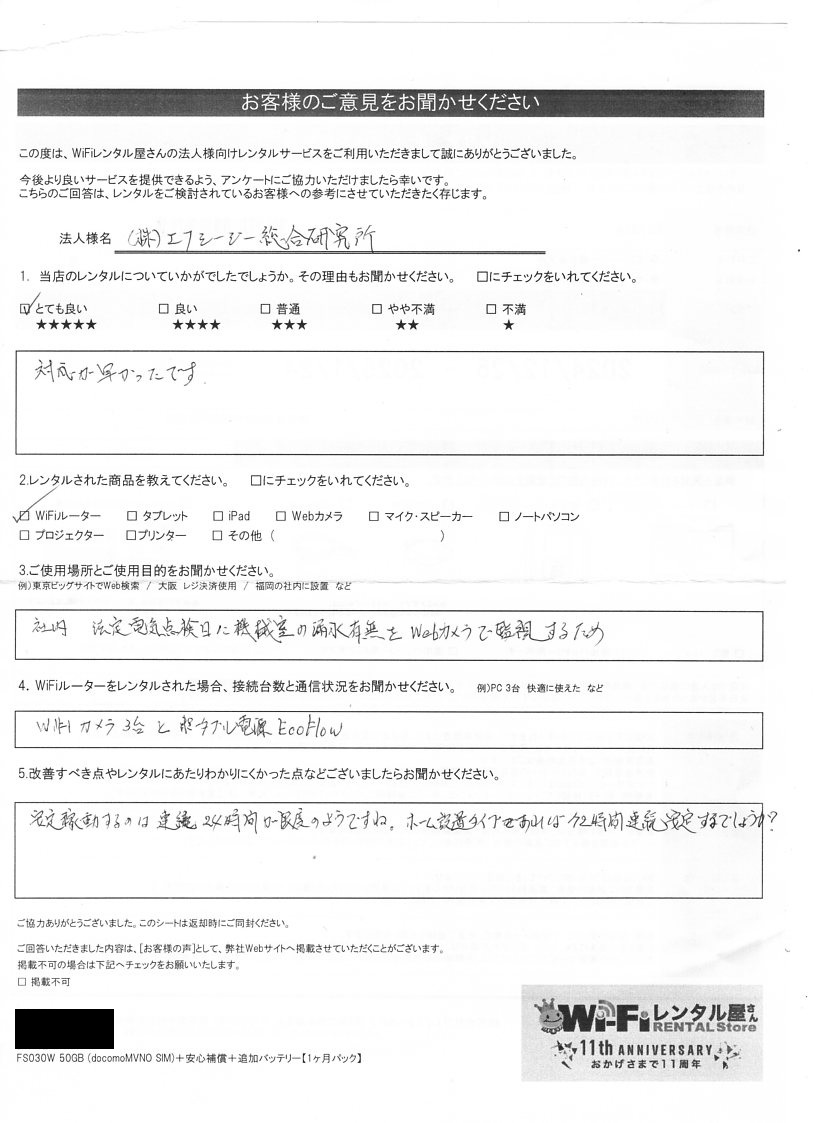 お客様のご意見をお聞かせください
この度は、WiFiレンタル屋さんの法人様向けレンタルサービスをご利用いただきまして誠にありがとうございました。
今後より良いサービスを提供できるよう、アンケートにご協力いただけましたら幸いです。
こちらのご回答は、レンタルをご検討されているお客様への参考にさせていただきたく存じます。
法人様名 (株)エフシージー総合研究所
1. 当店のレンタルについていかがでしたでしょうか。その理由もお聞かせください。 □にチェックをいれてください。
☑ とても良い □ 良い □ 普通 □ やや不満 □ 不満
★★★★★ ★★★★ ★★★ ★★ ★
対応が早かったです.
2.レンタルされた商品を教えてください。 □にチェックをいれてください。
☑ WiFiルーター □ タブレット □ iPad □ Webカメラ □ マイク・スピーカー □ ノートパソコン
□ プロジェクター □プリンター □ その他 ( )
3.ご使用場所とご使用目的をお聞かせください。
例)東京ビッグサイトでWeb検索 / 大阪 レジ決済使用 / 福岡の社内に設置 など
社内 法定電気点検日に機械室の漏水有無を Webカメラで監視するため
4. WiFiルーターをレンタルされた場合、接続台数と通信状況をお聞かせください。 例)PC 3台 快適に使えた など
WiFi カメラ 3台 と ポータブル電源 EcoFlow
5.改善すべき点やレンタルにあたりわかりにくかった点などございましたらお聞かせください。
安定稼動するのは 連続 24時間が限度のようですね。ホーム設置タイプであれば 72時間連続安定するでしょうか?
ご協力ありがとうございました。このシートは返却時にご同封ください。
ご回答いただきました内容は、[お客様の声]として、弊社Webサイトへ掲載させていただくことがございます。
掲載不可の場合は下記へチェックをお願いいたします。
□ 掲載不可
Wi-Fiレンタル屋さん
RENTAL Store
11th ANNIVERSARY
おかげさまで11周年
FS030W 50GB (docomoMVNO SIM)+安心補償+追加バッテリー【1ヶ月パック】